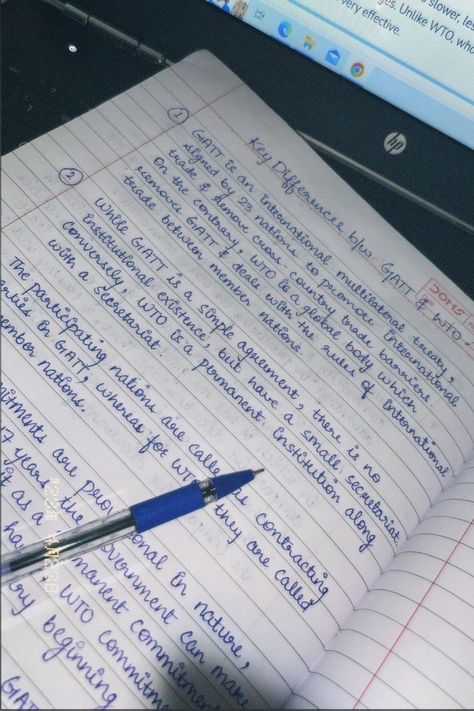 slower, les
ges. Unlike WTO, who
very effective.
hp
Key Differences b/w GATT & WTO
① GATT is an international multilateral treaty,
signed by 23 nations to promote international
trade & remove cross country trade barriers.
On the contrary, WTO is a global body which
removes GATT & deals with the rules of international
trade between member nations.
② While GATT is a simple agreement, there is no
institutional existence, but have a small secretariat.
Conversely, WTO is a permanent Institution along
with a secretariat.
The participating nations are called contracting
in GATT, whereas for they are called
mber nations.
mitments are provisional in nature,
years the government can make
it as a permanent commitment
WTO commitmen
ry beginning
GAT